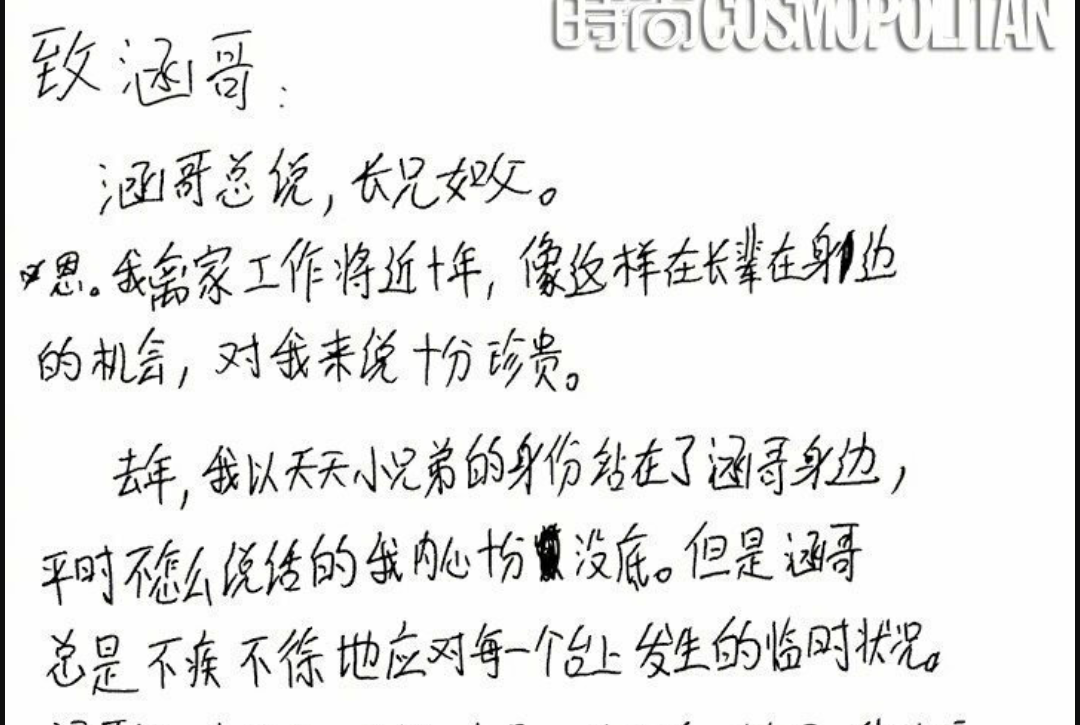 時尚COSMOPOLITAN
致涵哥:
涵哥总说,长兄如父。
恩。我离家工作将近十年,像这样在长辈在身边
的机会,对我来说十分珍贵。
去年,我以天天小兄弟的身份站在了涵哥身边,
平时不怎么说话的我内心十分没底。但是涵哥
总是不疾不徐地应对每一个台上发生的临时状况。